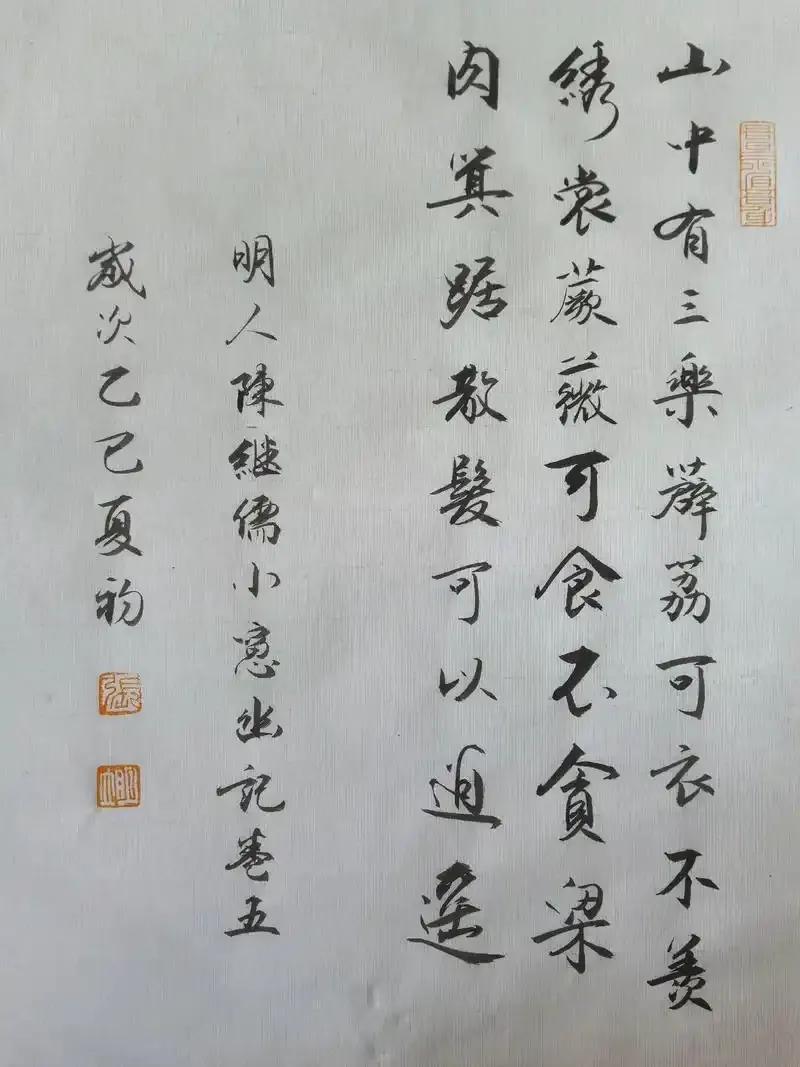 山中有三樂薜荔可衣不羨
綉裳蕨薇可食不貪梁
肉箕踞散髮可以逍遥
明人陳継儒小窓幽記卷五
嵗次乙巳夏初
張